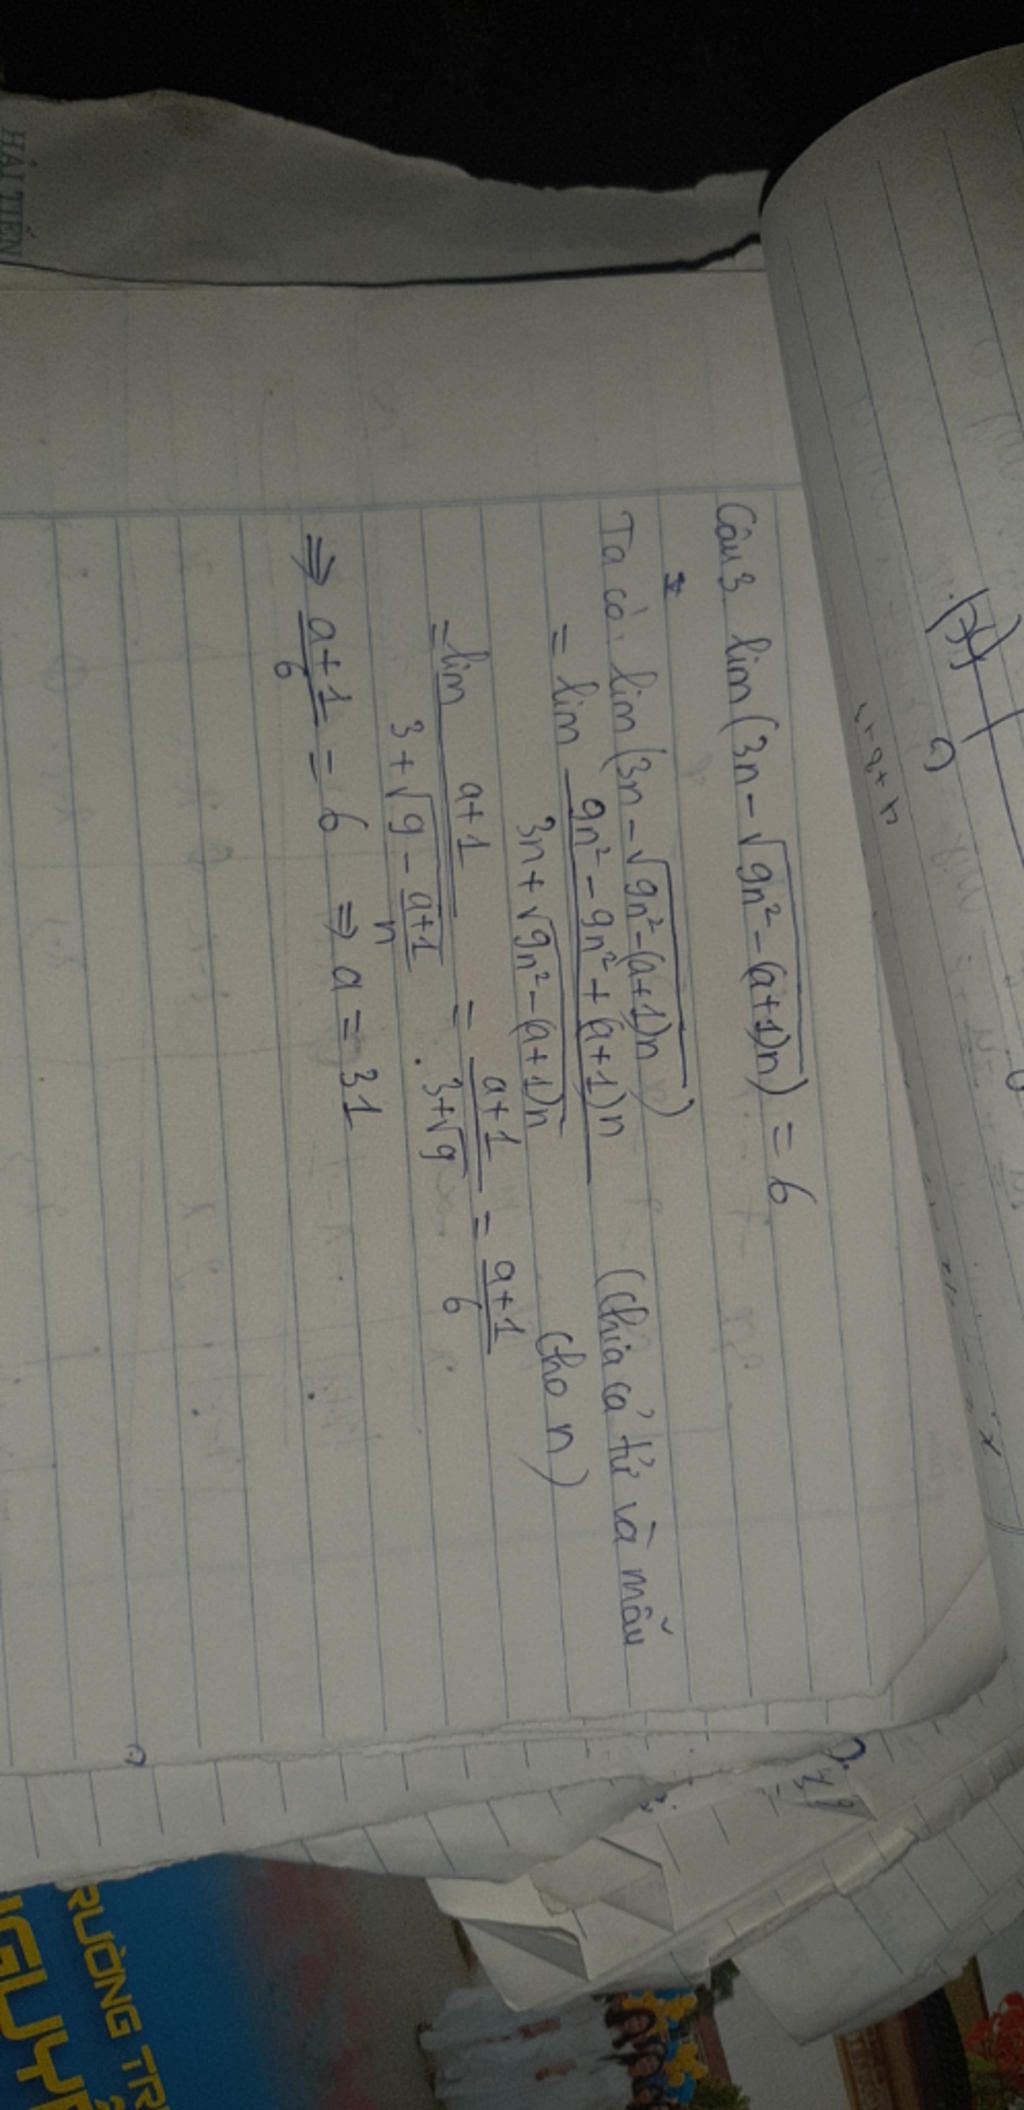 Câu 3. lim (3n - √(9n² - (a+1)n)) = 6
Ta có. lim (3n - √(9n² - (a+1)n))
= lim (9n² - 9n² + (a+1)n) / (3n + √(9n² - (a+1)n)) (Chia cả tử và mẫu
cho n)
= lim (a+1) / (3 + √(9 - (a+1)/n)) = (a+1) / (3+√9) = (a+1) / 6
⇒ (a+1) / 6 = 6 ⇒ a = 31
HẢI TIẾN
RƯỜNG TR